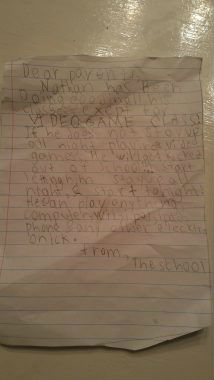 Dear parents,
Nathan has been
Doing good in all his
classes except for
VIDEO GAME CLASS
If he does not stay up
all night playing video
games, he will get kicked
out of school.
let him stay up all
night, & start tonight!
He can play anything
computer, Wii,
phone & any other electr
onick.
from, The school